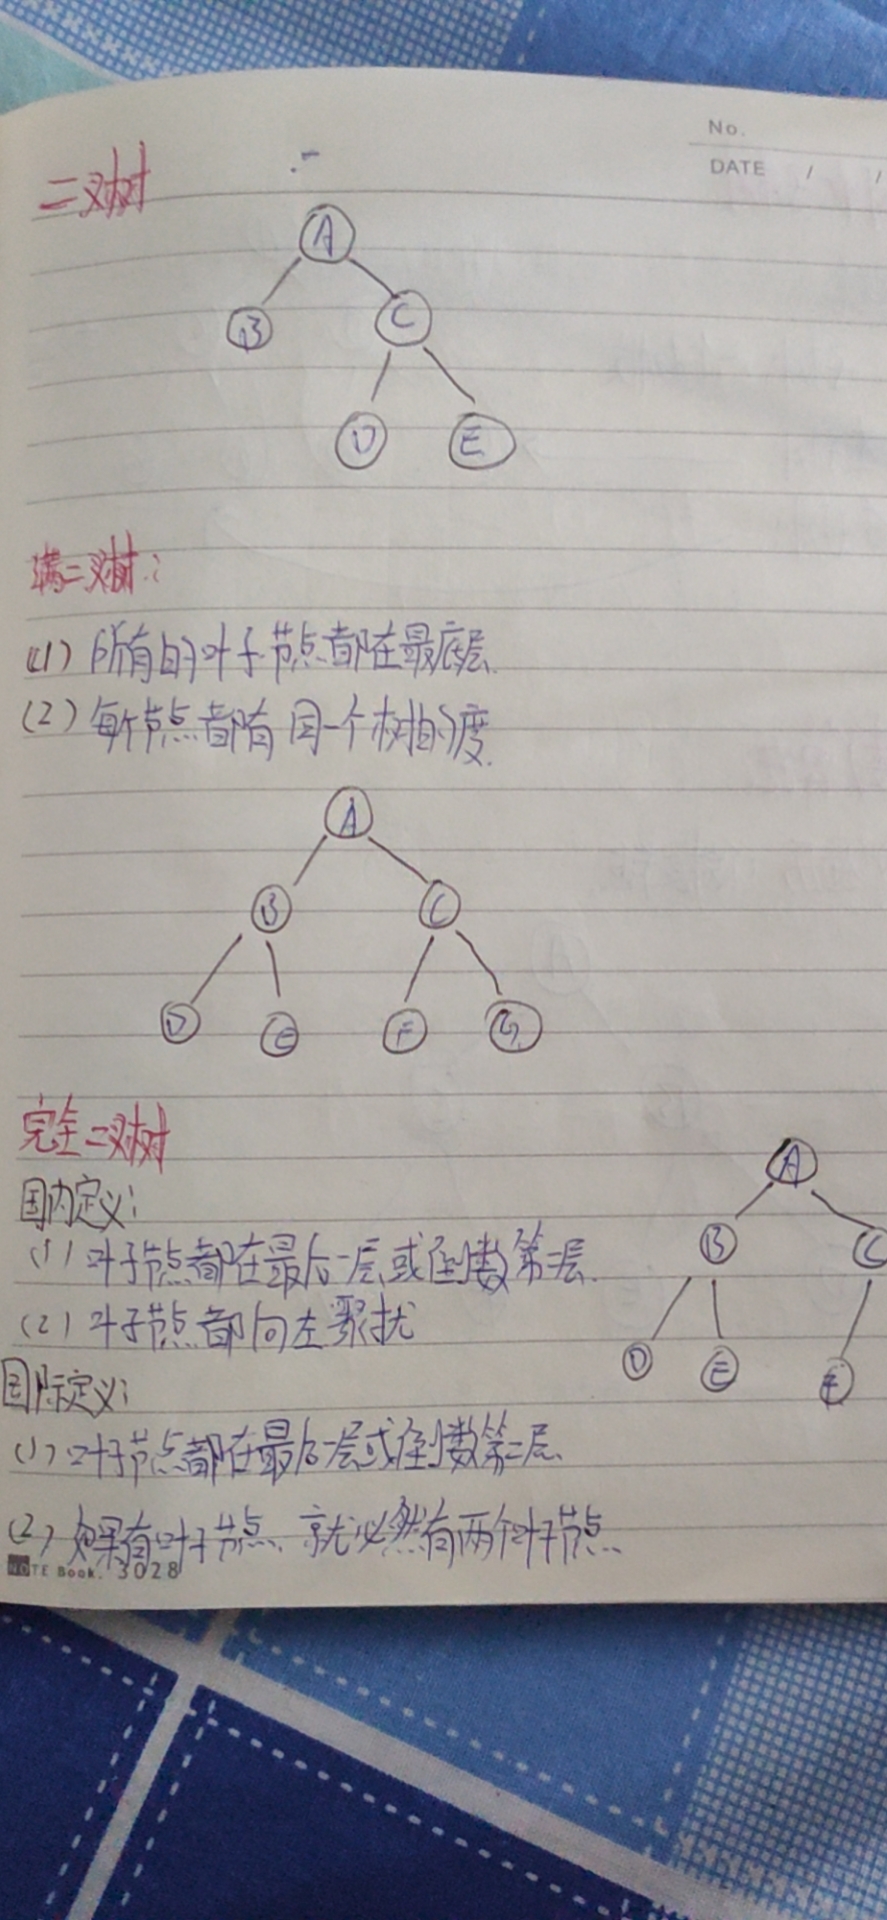 No.
DATE / /
二叉树
A
B C
D E
满二叉树:
(1) 所有的叶子节点都在最底层.
(2) 每个节点都有同一个树的度.
A
B C
D E F G
完全二叉树
国内定义:
(1) 叶子节点都在最后一层或倒数第二层.
(2) 叶子节点都向左聚扰
A
B C
D E F
国际定义:
(1) 叶子节点都在最后一层或倒数第二层.
(2) 如果有叶子节点、就必然有两个叶子节点、
NOTE Book. 3028